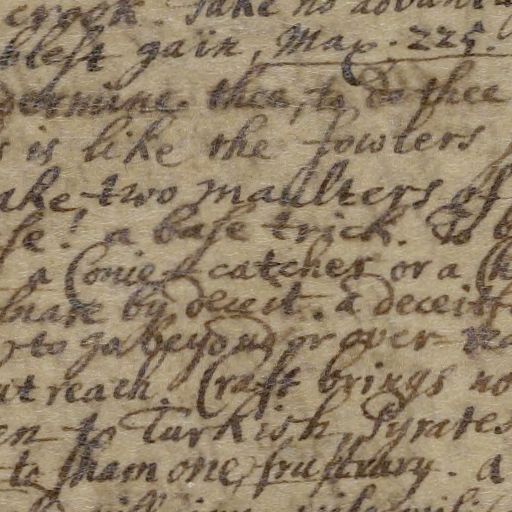 crook. Take no advant
blest gain, Max. 225.
dermine thee, to do thee
s is like the fowlers
ake, two maulters of
se! a base trick. To b
a Conie-catcher or a Ch
nare by deceit. a deceitf
to go beyond or over-re
ut reach. Craft brings no
en to Turkish Pyrates
to sham one, frustrary. a